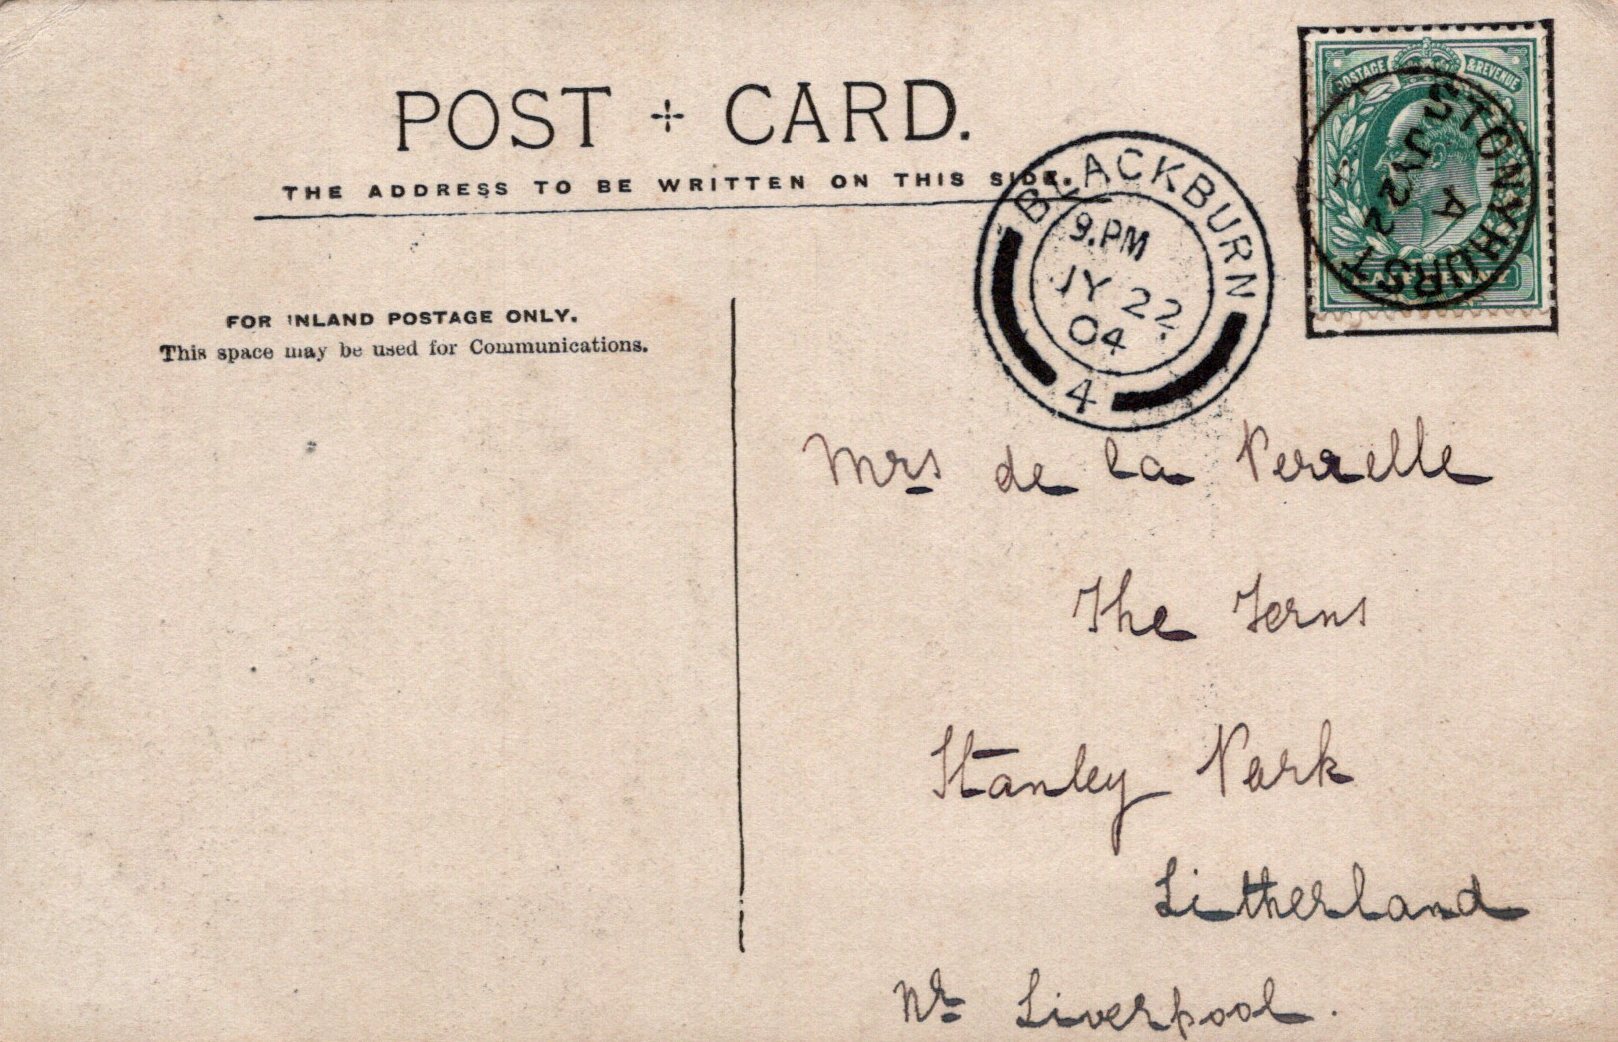 POST CARD.
THE ADDRESS TO BE WRITTEN ON THIS SIDE.
POSTAGE & REVENUE
STONYHURST
A
JY 22
BLACKBURN
9.PM
JY 22
04
4
FOR INLAND POSTAGE ONLY.
This space may be used for Communications.
Mrs de la Perrelle
The Ferns
Stanley Park
Litherland
Nr Liverpool.